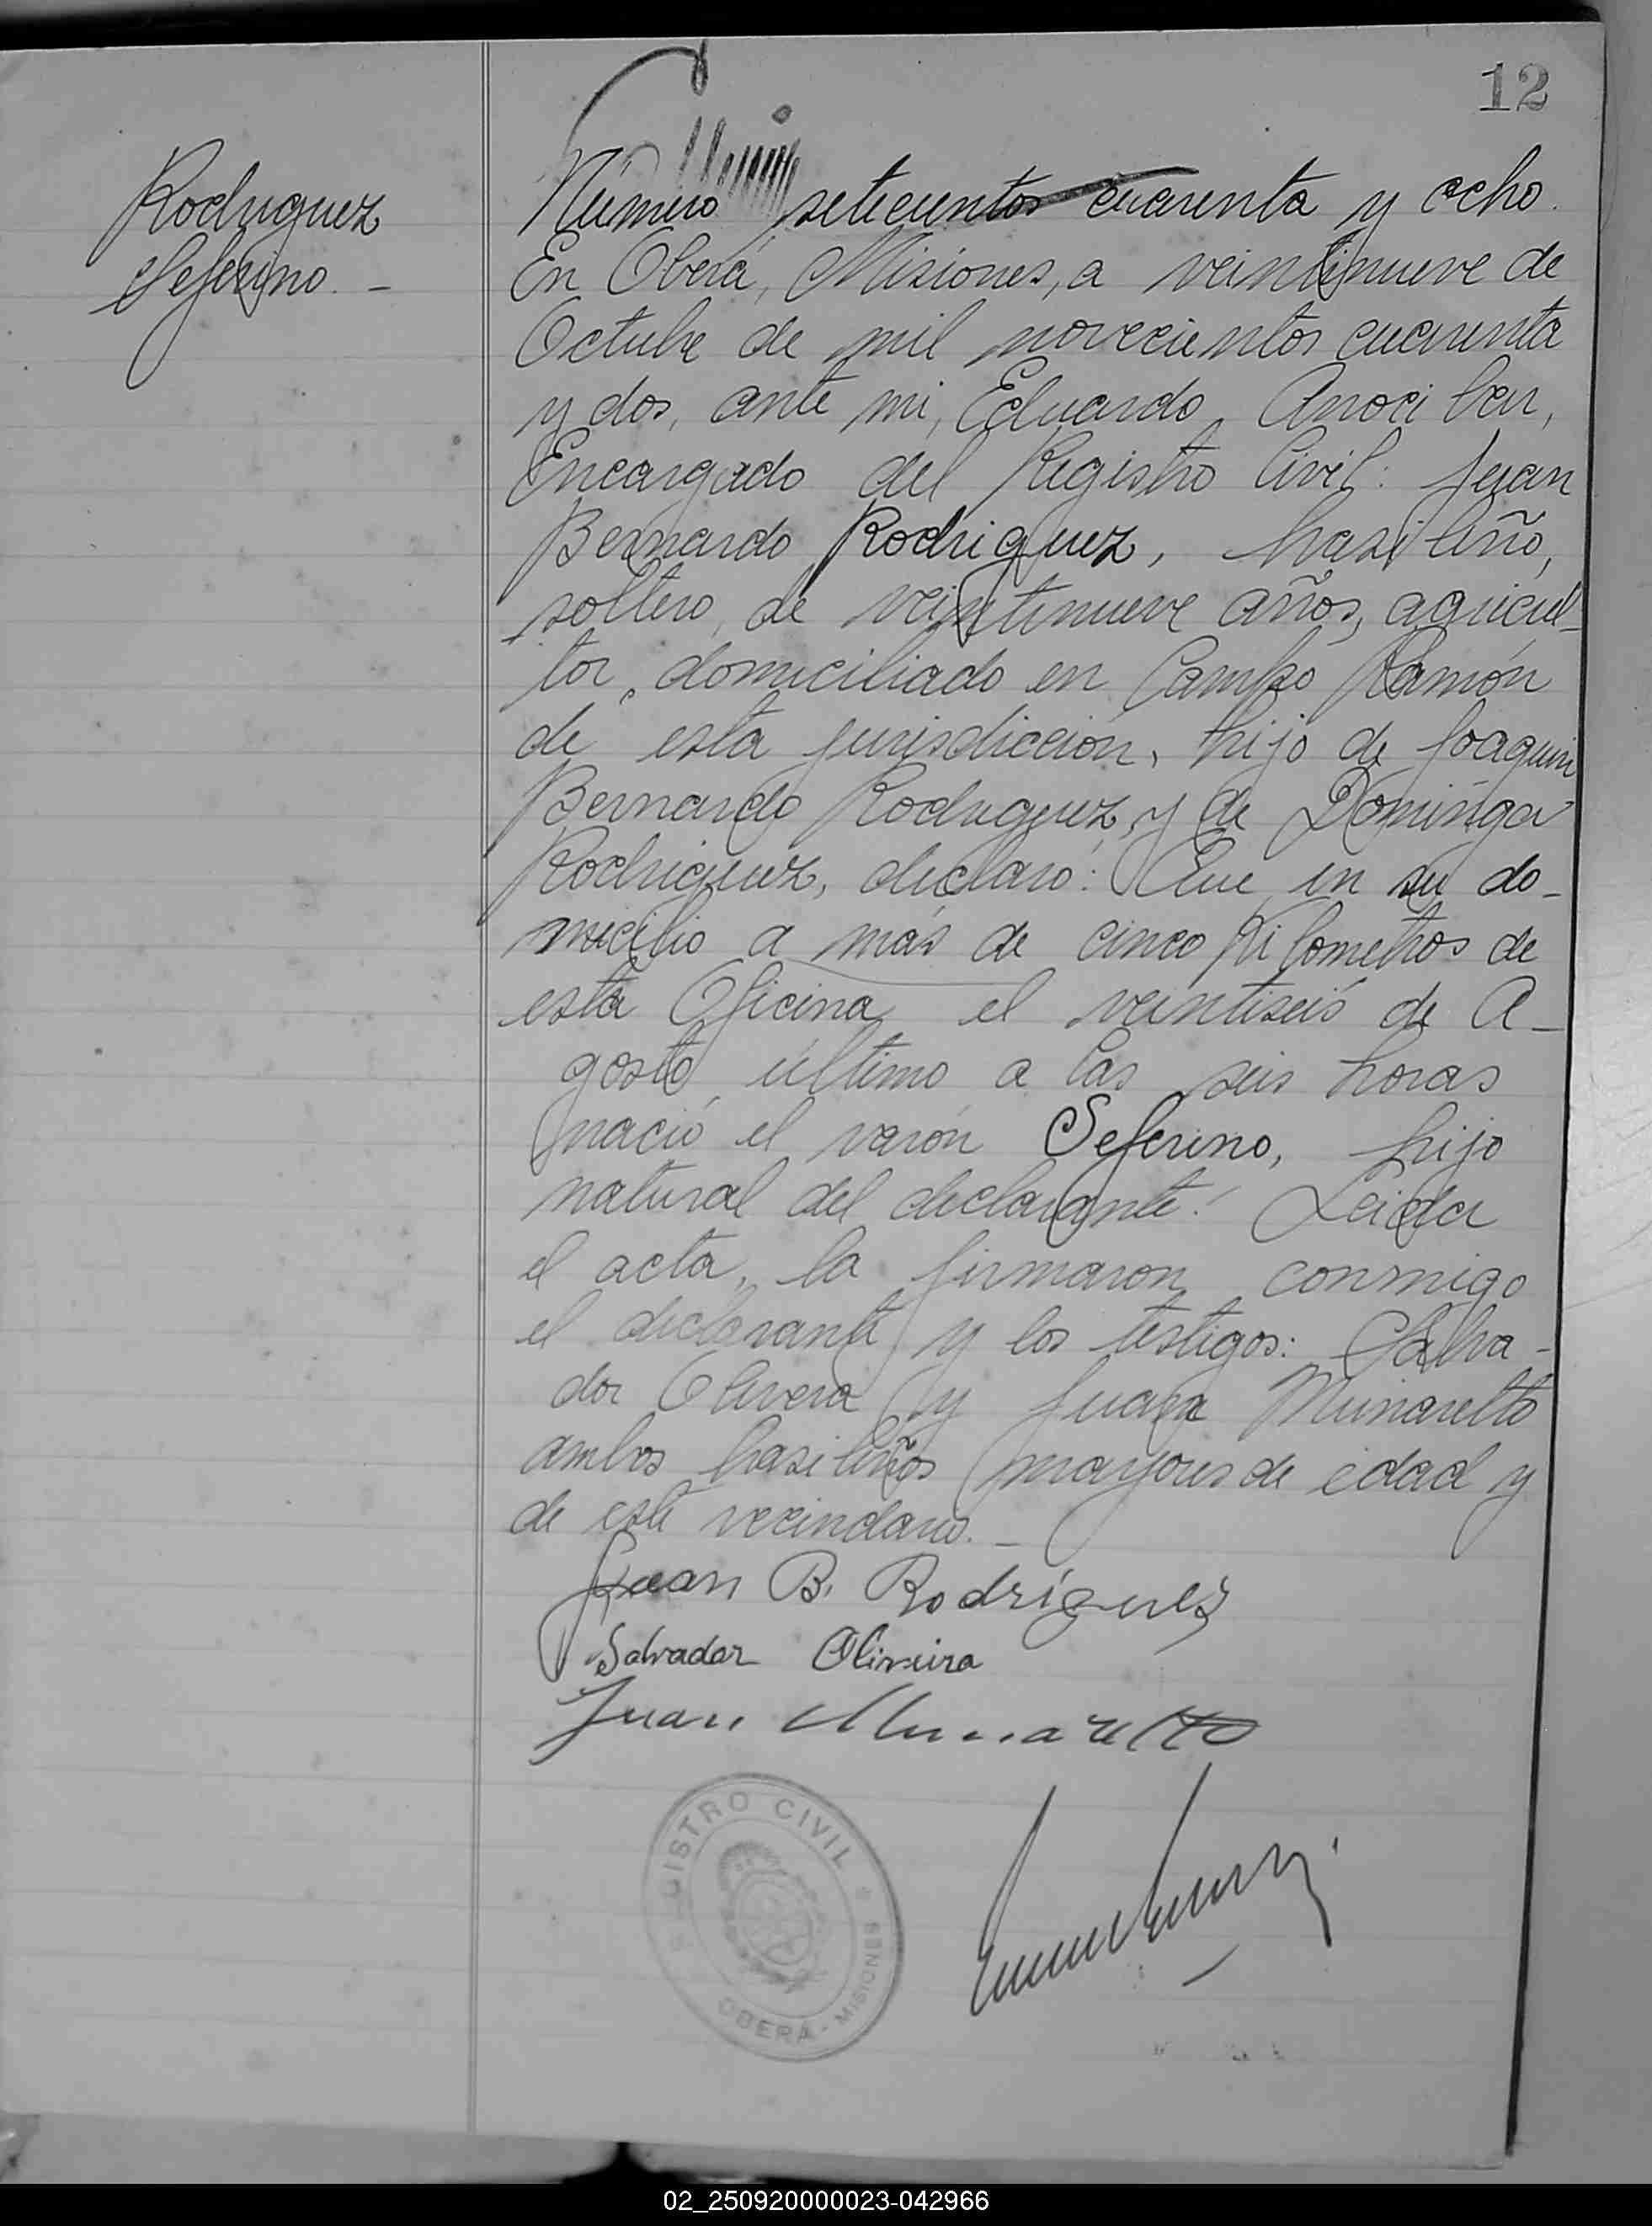 12
Rodriguez
Seferino. -
Número setecientos cuarenta y ocho.
En Oberá, Misiones, a veintinueve de
Octubre de mil novecientos cuarenta
y dos, ante mi, Eduardo Anocibar,
Encargado del Registro Civil: Juan
Bernardo Rodriguez, brasileño,
soltero, de veintinueve años, agricul-
tor, domiciliado en Campo Ramón
de esta jurisdicción, hijo de Joaquin
Bernardo Rodriguez y de Dominga
Rodriguez, declaró: Que en su do-
micilio a más de cinco Kilometros de
esta Oficina el veintiseis de A-
gosto último a las seis horas
nació el varón Seferino, hijo
natural del declarante. Leida
el acta, la firmaron conmigo
el declarante y los testigos: Salva-
dor Olivera y Juan Munaretto
ambos brasileños mayores de edad y
de este vecindario. -
Juan B. Rodríguez
Salvador Oliveira
Juan Munaretto
REGISTRO CIVIL
OBERÁ - MISIONES
02_250920000023-042966